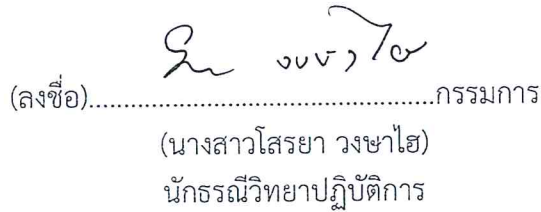 (ลงชื่อ)..................................................กรรมการ
(นางสาวโสรยา วงษาไฮ)
นักธรณีวิทยาปฏิบัติการ